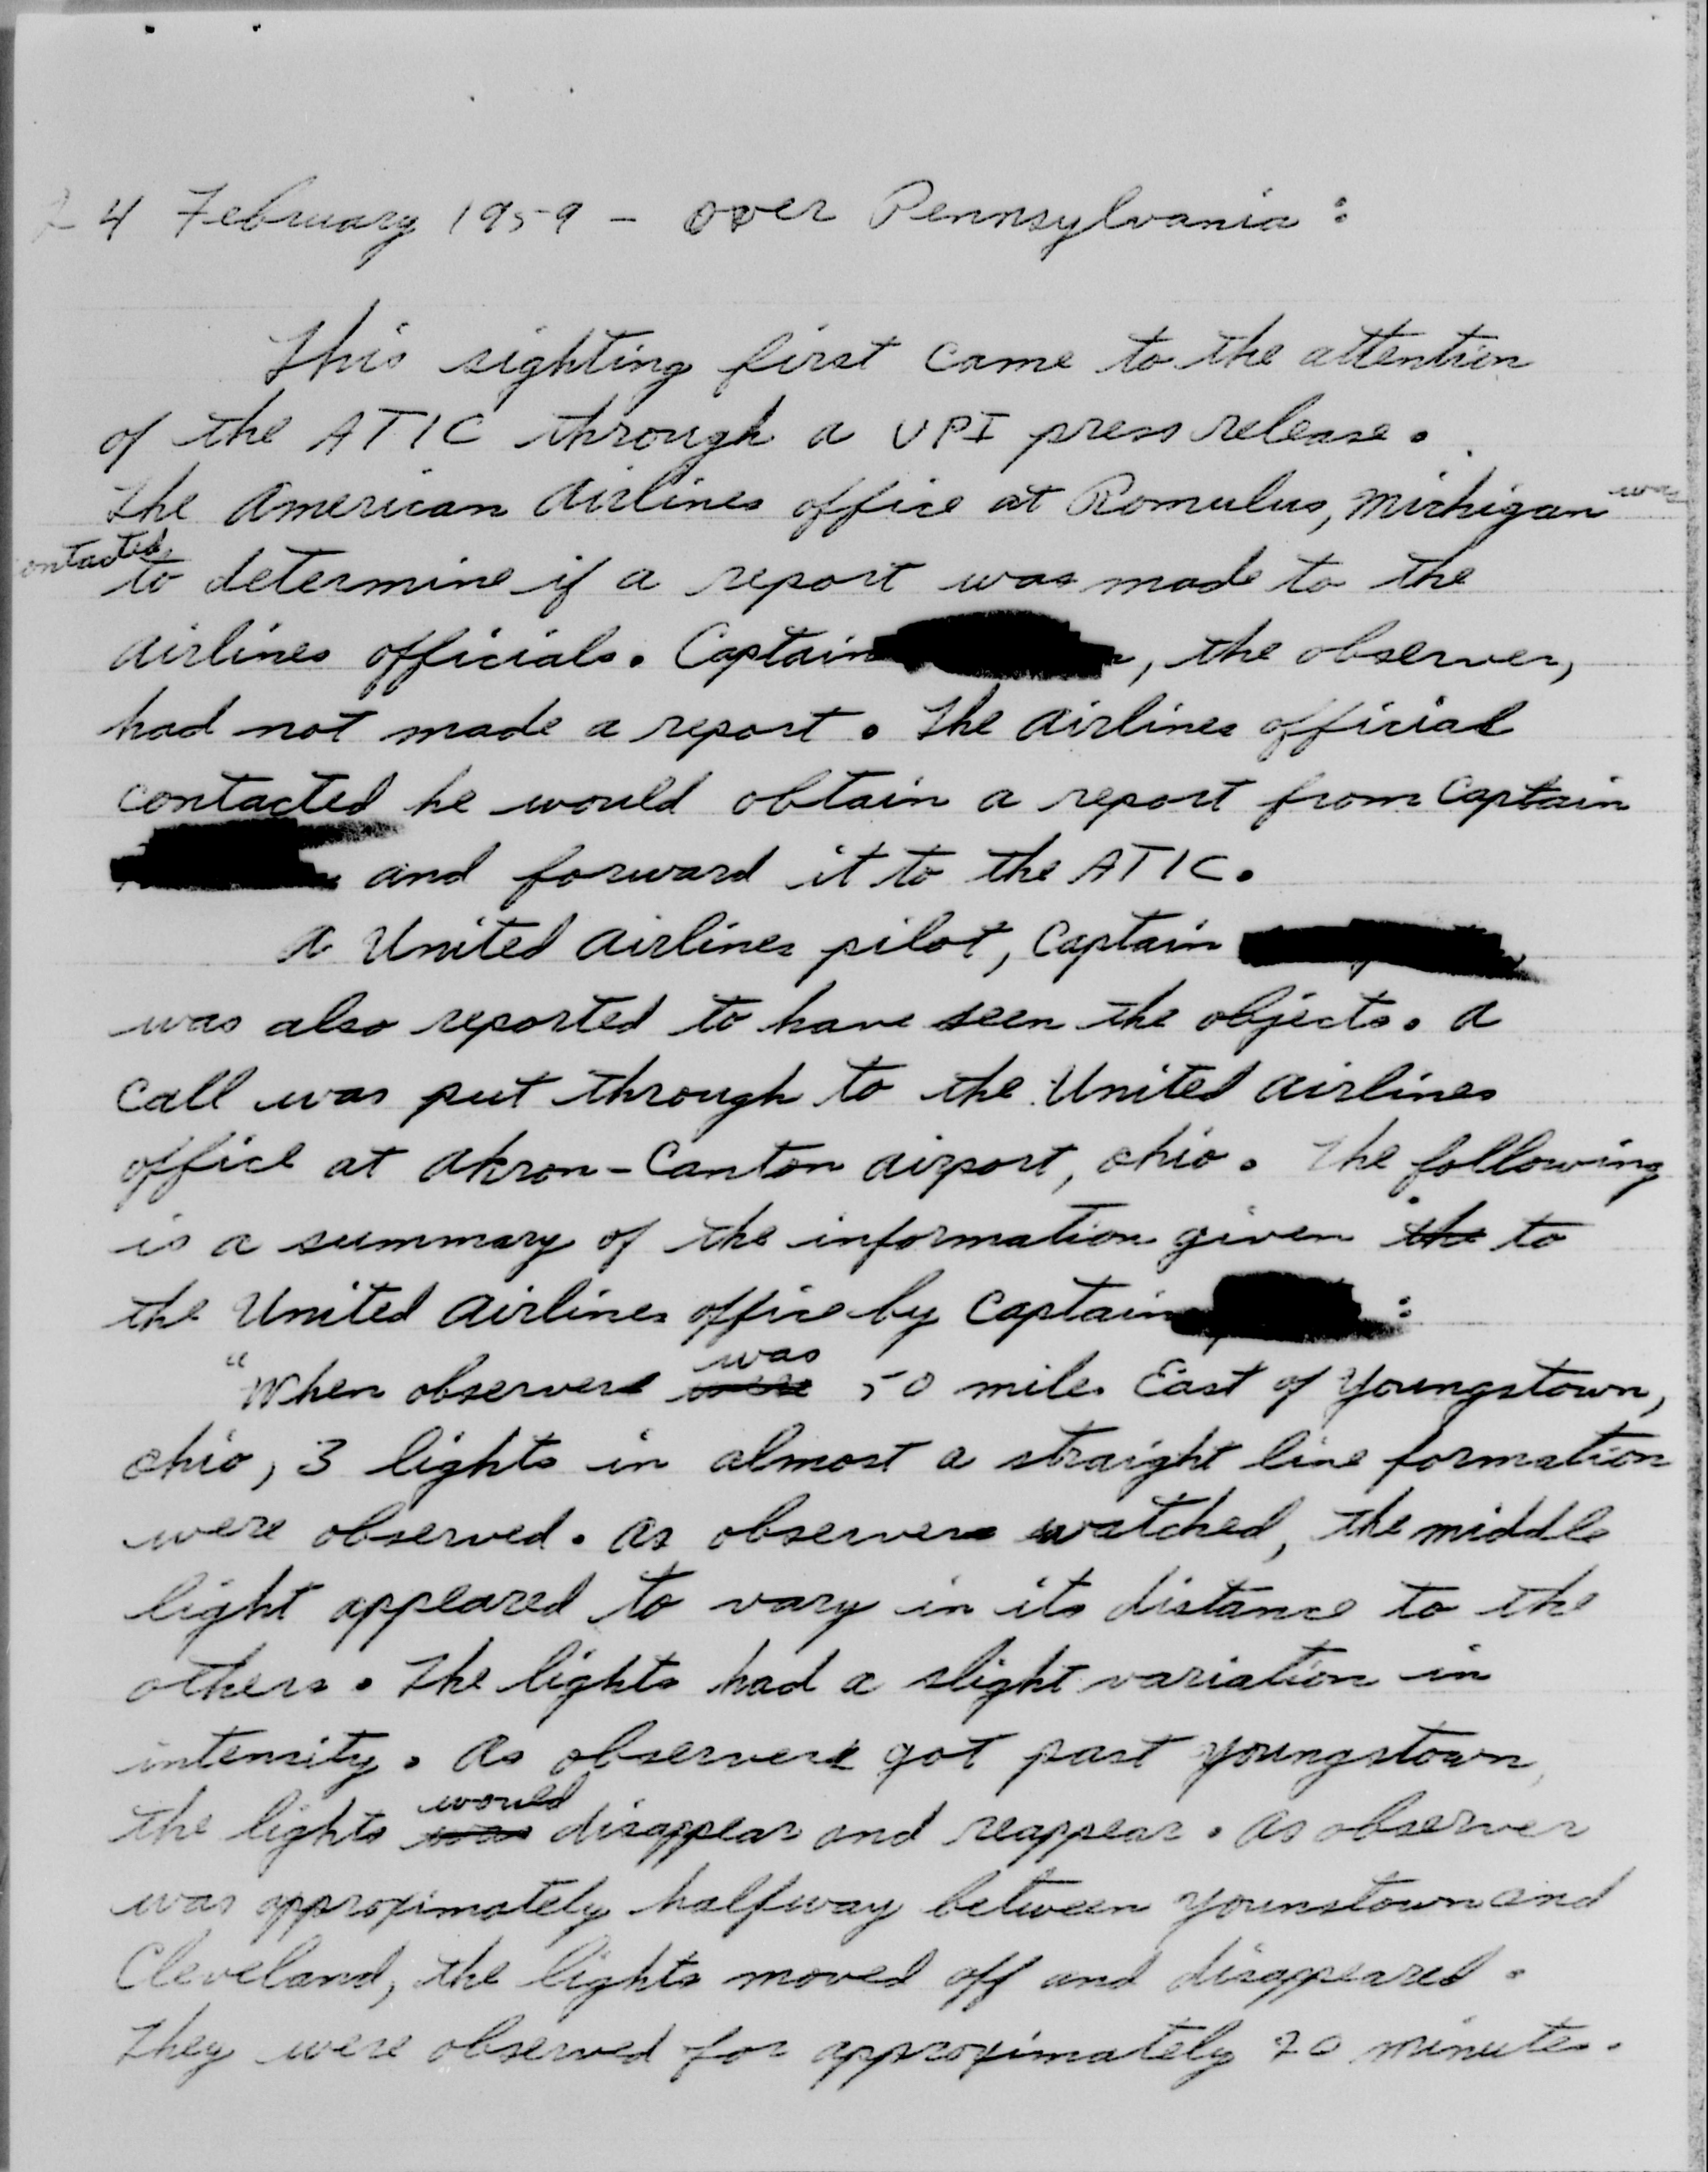 24 February 1959 - over Pennsylvania :
This sighting first came to the attention
of the ATIC through a UPI press release.
The American Airlines office at Romulus, Michigan was
contacted to determine if a report was made to the
airlines officials. Captain , the observer,
had not made a report. The airlines official
contacted he would obtain a report from Captain
and forward it to the ATIC.
A United Airlines pilot, Captain
was also reported to have seen the objects. A
call was put through to the United Airlines
office at Akron-Canton airport, Ohio. The following
is a summary of the information given the to
the United Airlines office by Captain :
"When observers were was 50 miles East of Youngstown,
Ohio, 3 lights in almost a straight line formation
were observed. As observers watched, the middle
light appeared to vary in its distance to the
others. The lights had a slight variation in
intensity. As observers got past Youngstown,
the lights was would disappear and reappear. As observer
was approximately halfway between Younstown and
Cleveland, the lights moved off and disappeared.
They were observed for approximately 20 minutes.